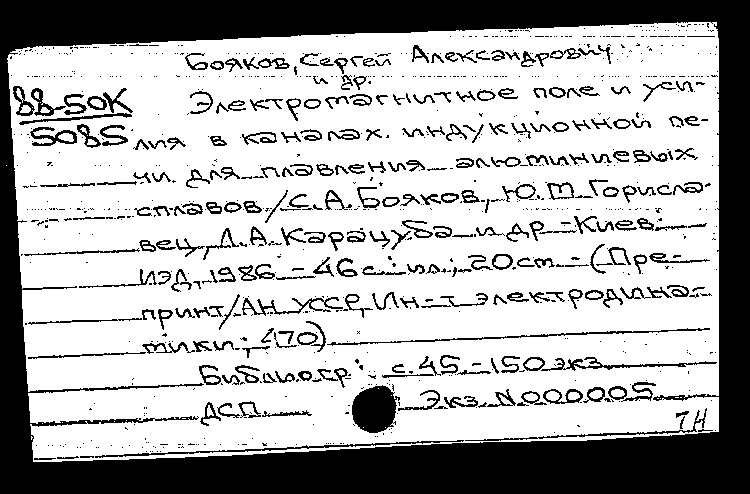 Бояков, Сергей Александрович
и др.
88-50К
5085
Электромагнитное поле и уси-
лия в каналах индукционной пе-
чи для плавления алюминиевых
сплавов / С.А. Бояков, Ю.М. Горисла-
вец, Л.А. Карацуба и др - Киев:
ИЭД, 1986. - 46 с.: ил.; 20 см. - (Пре-
принт / АН УССР, Ин-т электродина-
мики; 470).
Библиогр: с. 45. - 150 экз.
ДСП. Экз. N 000005
7Н